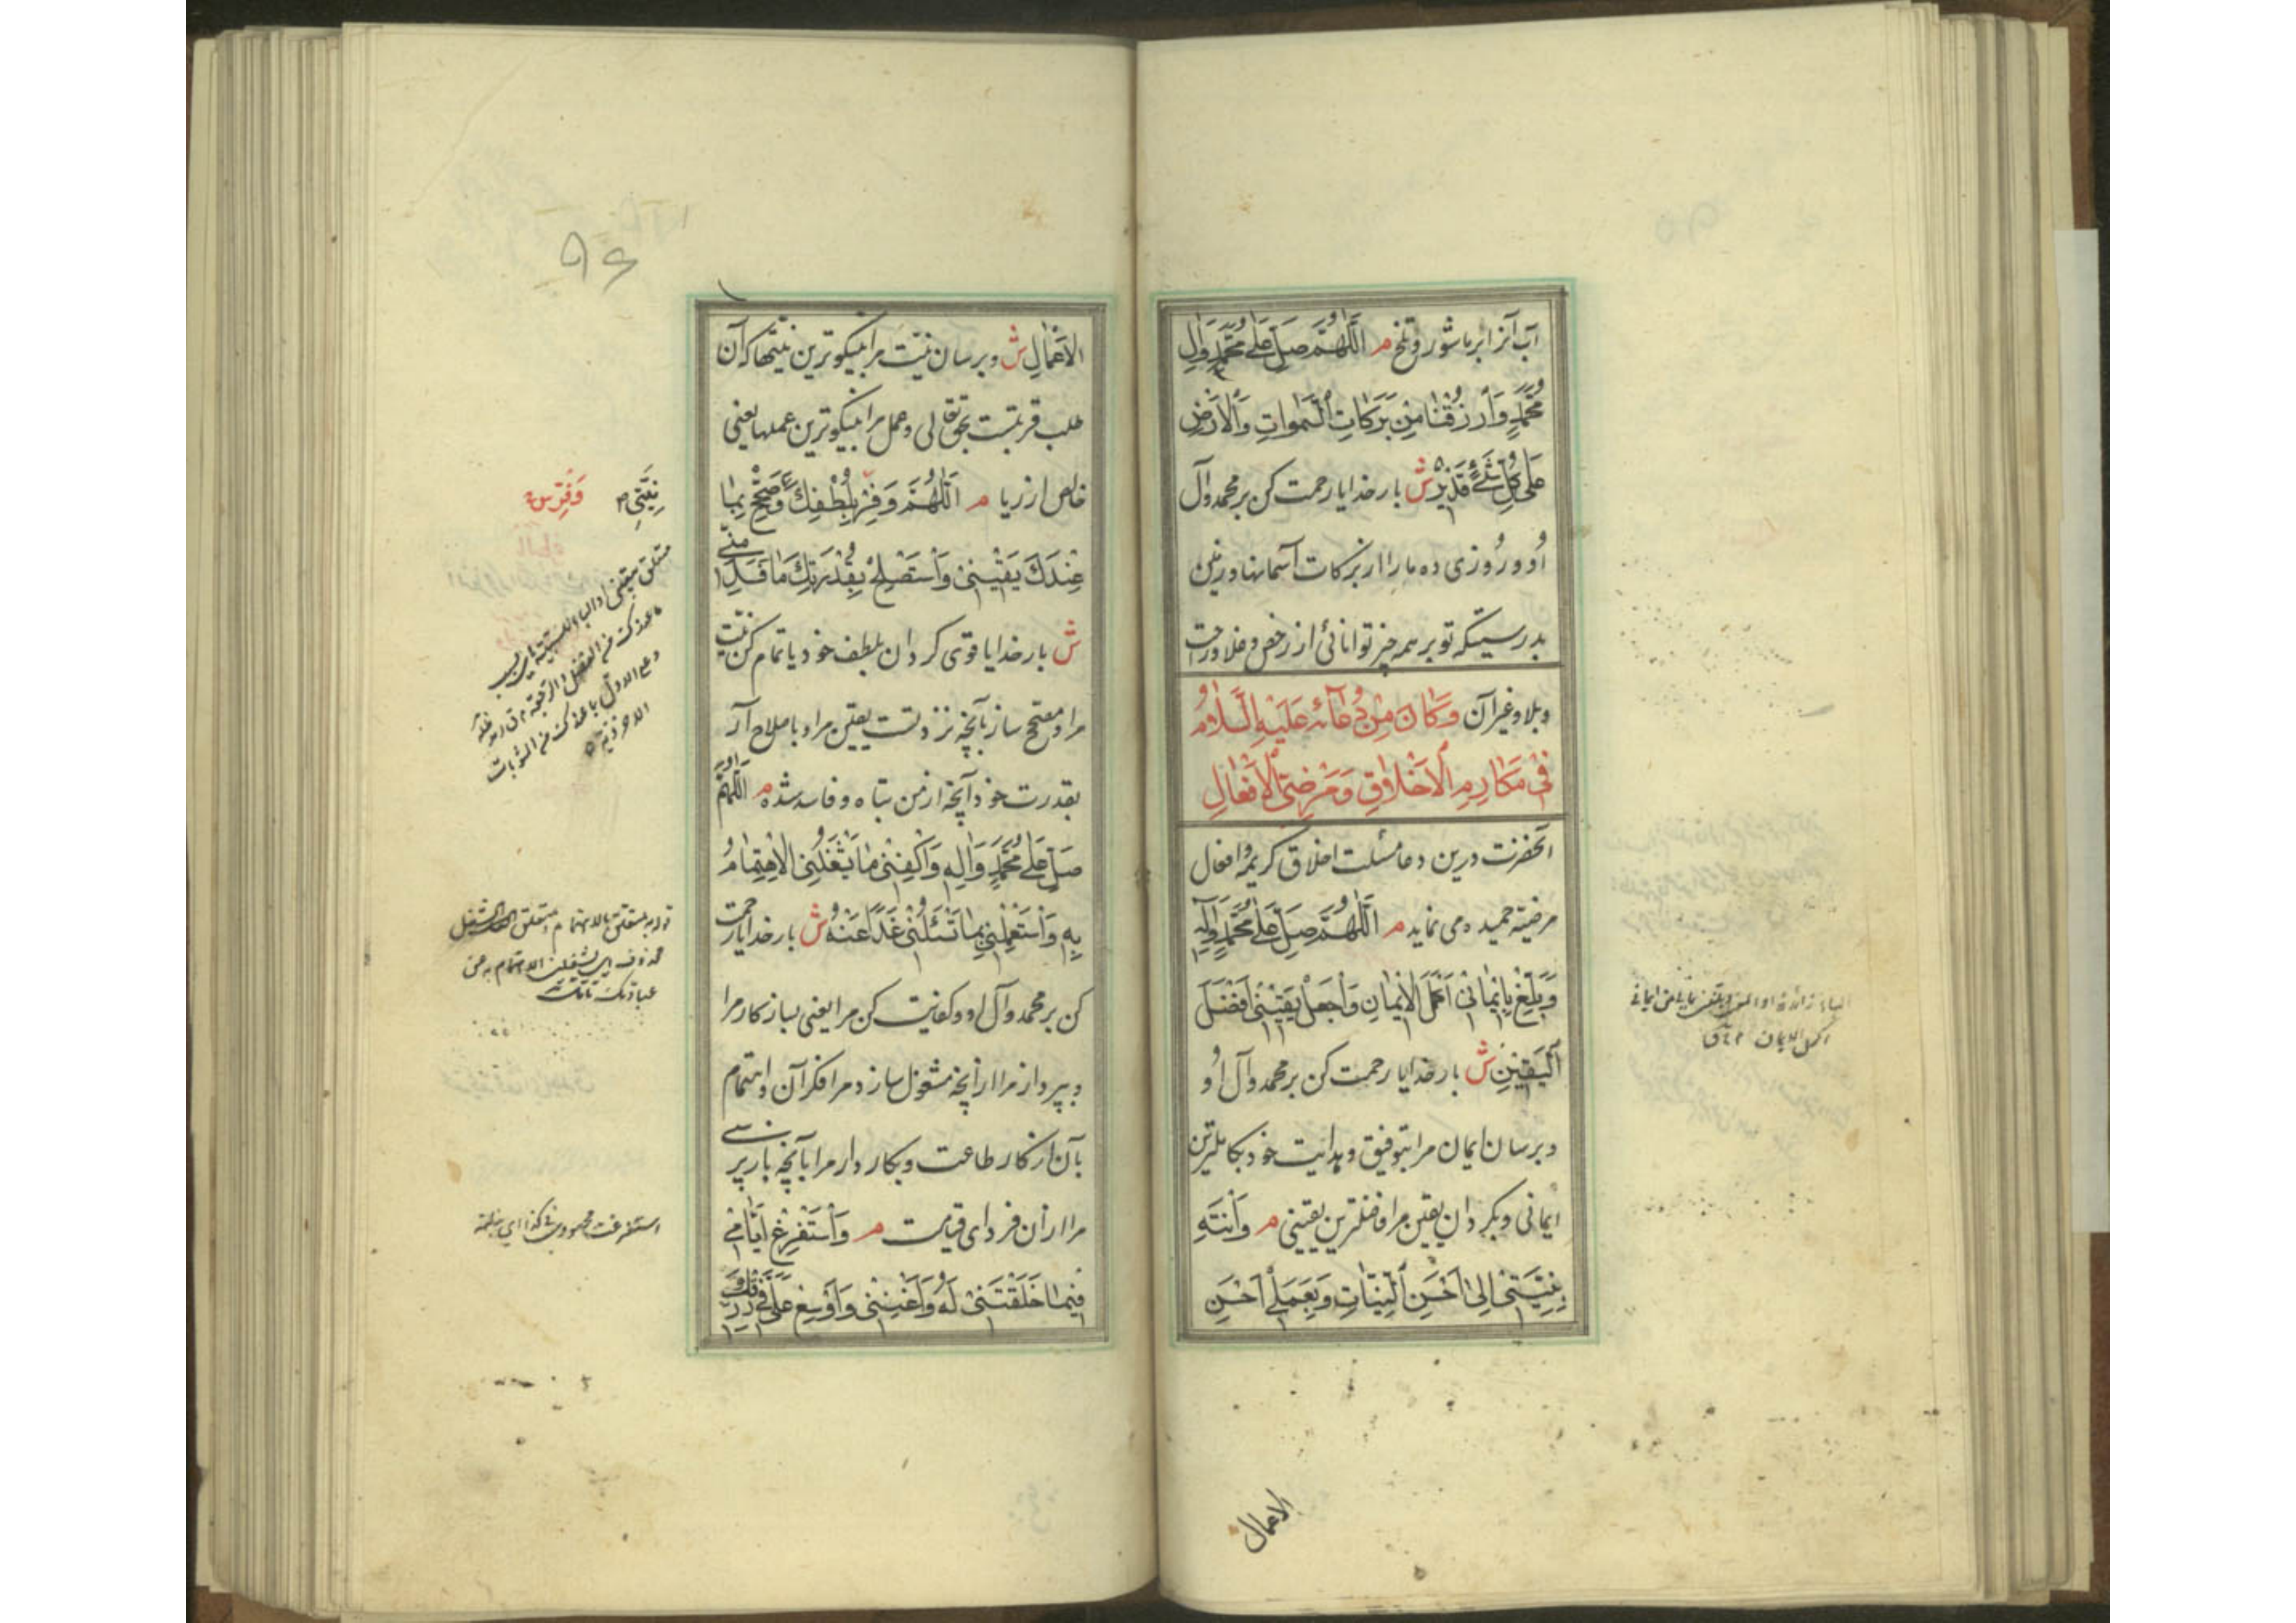 آب آنرا بر ما شور و تلخ م اَللّٰهُمَّ صَلِّ عَلٰى مُحَمَّدٍ وَاٰلِ
مُحَمَّدٍ وَارْزُقْنَا مِنْ بَرَكَاتِ السَّمٰوَاتِ وَالْاَرْضِ
عَلٰى كُلِّ شَيْءٍ قَدِيرٌ ش بار خدایا رحمت کن بر محمد و آل
او و روزی ده ما را از برکات آسمانها و زمین
بدرستیکه تو بر همه چیز توانائی از رخص و غلا و راحت
و بلا و غیر آن وَكَانَ مِنْ دُعَائِهِ عَلَيْهِ السَّلَامُ
فِي مَكَارِمِ الْاَخْلَاقِ وَمَرْضِيِّ الْاَفْعَالِ
آنحضرت درین دعا مسئلت اخلاق کریمه و افعال
مرضیّه حمیده می نماید م اَللّٰهُمَّ صَلِّ عَلٰى مُحَمَّدٍ وَاٰلِهِ
وَبَلِّغْ بِاِيْمَانِيْ اَكْمَلَ الْاِيْمَانِ وَاجْعَلْ يَقِيْنِيْ اَفْضَلَ
الْيَقِيْنِ ش بار خدایا رحمت کن بر محمد و آل او
و برسان ایمان مرا بتوفیق و هدایت خود بکاملترین
ایمانی و بگردان یقین مرا فاضلترین یقینی م وَانْتَهِ
بِنِيَّتِيْ اِلٰى اَحْسَنِ النِّيَّاتِ وَبِعَمَلِيْ اِلٰى اَحْسَنِ
الباء زائدة
اکمل الایمان
الاعمال
٩٦
الْاَعْمَالِ ش و برسان نیّت مرا بنیکوترین نیّتها که آن
طلب قربتست بحق تعالی و عمل مرا بنیکوترین عملها یعنی
خالص از ریا م اَللّٰهُمَّ وَفِّرْ بِلُطْفِكَ وَصَحِّحْ بِمَا
عِنْدَكَ يَقِيْنِيْ وَاسْتَصْلِحْ بِقُدْرَتِكَ مَا فَسَدَ مِنِّيْ
ش بار خدایا قوی گردان بلطف خود یا تمام کن نیّت
مرا و مصحح ساز بآنچه نزد تست یقین مرا و باصلاح آر
بقدرت خود آنچه از من تباه و فاسد شده م اَللّٰهُمَّ
صَلِّ عَلٰى مُحَمَّدٍ وَاٰلِهِ وَاكْفِنِيْ مَا يَشْغَلُنِي الْاِهْتِمَامُ
بِهِ وَاسْتَعْمِلْنِيْ بِمَا تَسْئَلُنِيْ غَدًا عَنْهُ ش بار خدایا رحمت
کن بر محمد و آل او و کفایت کن مرا یعنی بساز کار مرا
و بپرداز مرا از آنچه مشغول سازد مرا فکر آن و اهتمام
بآن از کار طاعت و بکار دار مرا بآنچه باز پرسی
مرا از آن فردای قیامت م وَاسْتَفْرِغْ اَيَّامِيْ
فِيْمَا خَلَقْتَنِيْ لَهُ وَاَغْنِنِيْ وَاَوْسِعْ عَلَيَّ فِيْ رِزْقِكَ
نِيَّتِي